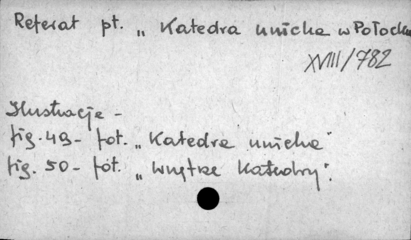 Referat pt. „Katedra unicka w Połocku
XVIII/782
Ilustracje -
fig. 49 - fot. „Katedra unicka"
fig. 50 - fot. „Wnętrze Katedry".